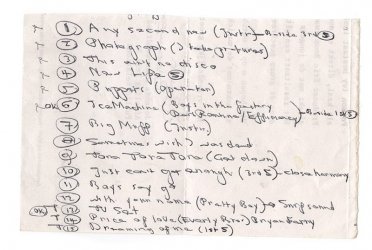 ① Any second now (Instr) - Builds 3rd ⑤
② Photograph (I take pictures)
③ This aint no disco
④ New Life ⑤
⑤ Puppets (Operator)
OK ⑥ Ice Machine (Boys in the factory / Efficiency) - Builds 1st ⑤
Big Muff (Instr)
⑧ Sometimes wish I was dead
⑨ Tora Tora Tora (Goat down)
Just cant get enough (3rd 5) - close harmony
Boys say go
with your name (Pretty Boy)
OK TV Set
Price of love (Everly Bros) Bryan Ferry
Dreaming of me (1st 5)